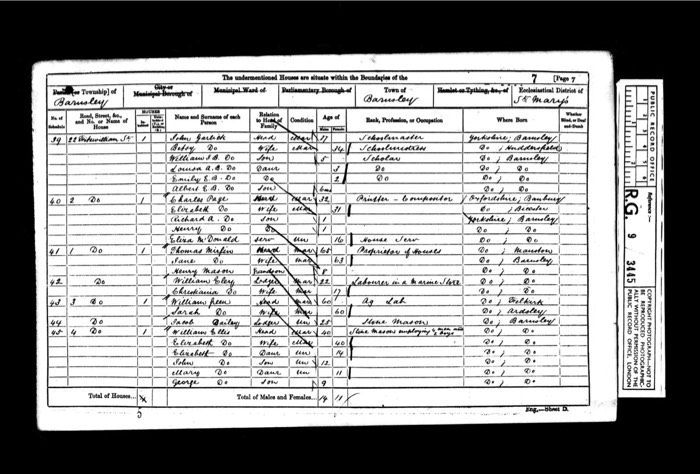 The undermentioned Houses are situate within the Boundaries of the 7 [Page 7
Parish [or Township] of
Barnsley
City or
Municipal Borough of
Municipal Ward of
Parliamentary Borough of
Town of
Barnsley
Hamlet or Tything, &c., of
Ecclesiastical District of
St Mary's
No. of Schedule Road, Street, &c., and No. or Name of House HOUSES Name and Surname of each Person Relation to Head of Family Condition Age of Males Females Rank, Profession, or Occupation Where Born Whether Blind, or Deaf-and-Dumb
39 22 Fitzwilliam St 1 John Head Mar 37 Schoolmaster Yorkshire, Barnsley
Betsy Do Wife Mar 34 Schoolmistress Do, Huddersfield
William S.B. Do Son 5 Scholar Do, Barnsley
Louisa A.B. Do Daur 3 Do Do, Do
Emily E.B. Do Do 2 Do Do, Do
Albert E.B. Do Son Do, Do
40 2 Do 1 Charles Page Head Mar 32 Printer - Compositor Oxfordshire, Banbury
Elizabeth Do Wife Mar 31 Do, Bicester
Richard A. Do Son 7 Yorkshire, Barnsley
Henry Do Do 1 Do, Do
Eliza McDonald Serv Un 16 House Serv Do, Do
41 1 Do 1 Thomas Head Mar 65 Proprietor of Houses Do,
Jane Do Wife Mar 63 Do, Barnsley
Henry Mason Grandson 8 Do, Do
42 Do William Lodger Mar 22 Labourer in a Marine Store Do, Do
Do Wife Mar 17 Do, Do
43 3 Do 1 William Head Mar 60 Ag Lab Do, Felkirk
Sarah Do Wife Mar 60 Do, Ardsley
44 Do Jacob Bailey Lodger Un 25 Stone Mason Do, Barnsley
45 4 Do 1 William Ellis Head Mar 40 Stone Mason employing Do, Do
Elizabeth Do Wife Mar 40 Do, Do
Elizabeth Do Daur Un 14 Do, Do
John Do Son Un 12 Do, Do
Mary Do Daur Un 11 Do, Do
George Do Son 9 Do, Do
Total of Houses... 4 Total of Males and Females... 14 11
Eng.—Sheet D.
PUBLIC RECORD OFFICE
Reference :-
R.G. 9 3445
COPYRIGHT PHOTOGRAPH—NOT TO
BE REPRODUCED PHOTOGRAPHIC-
ALLY WITHOUT PERMISSION OF THE
PUBLIC RECORD OFFICE, LONDON